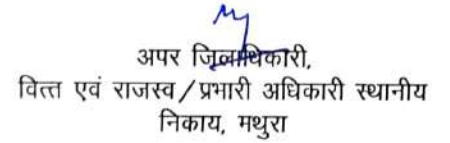 अपर जिलाधिकारी,
वित्त एवं राजस्व/प्रभारी अधिकारी स्थानीय
निकाय, मथुरा